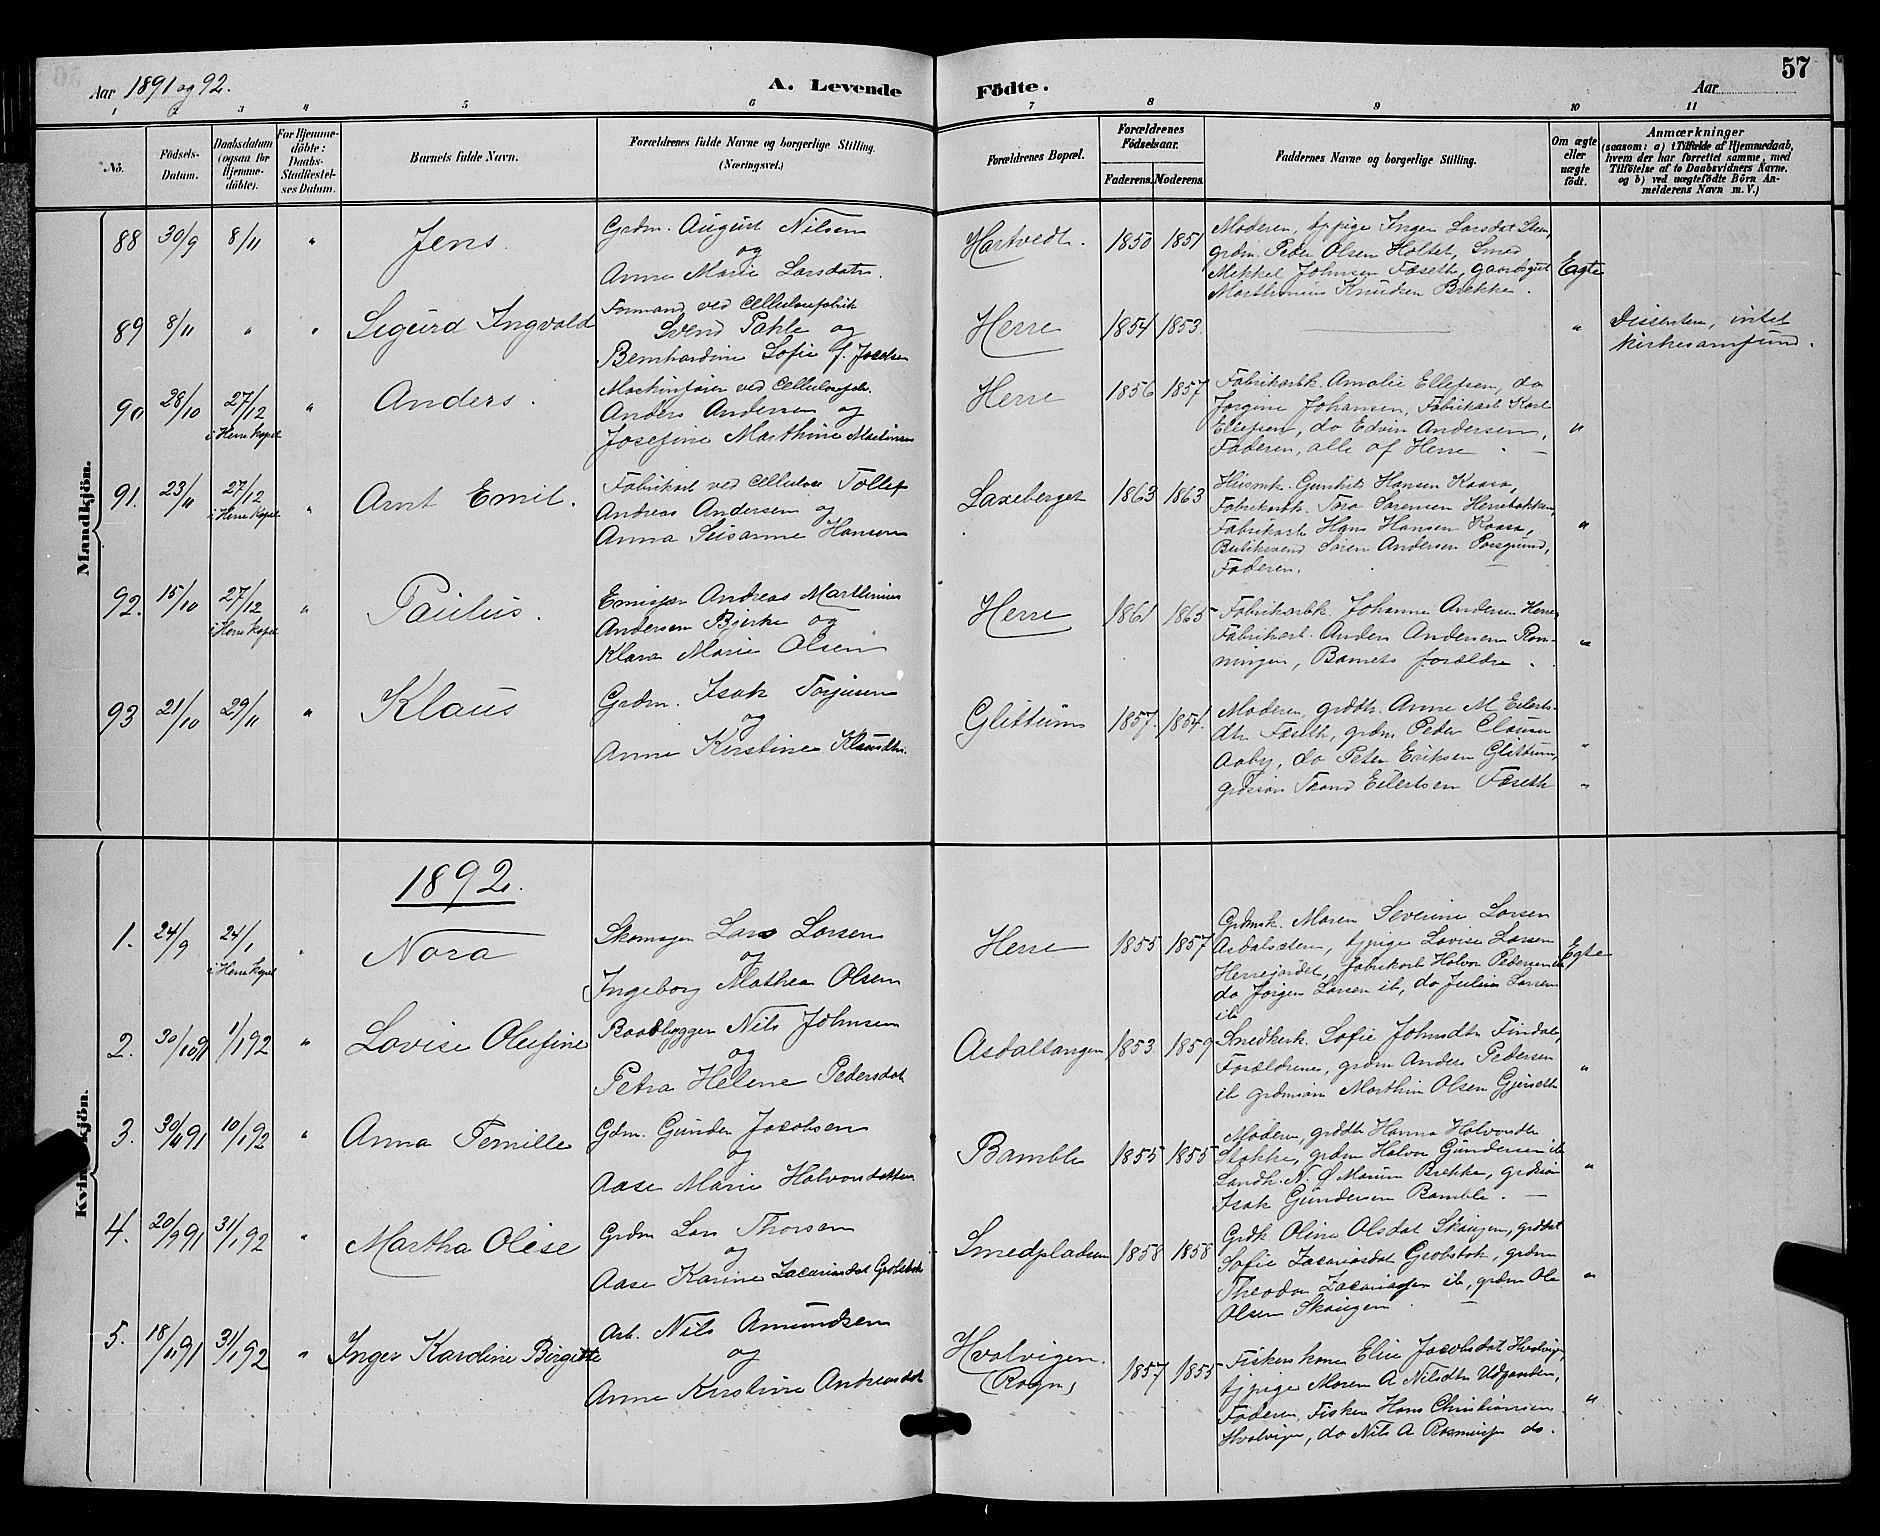 57
Aar 1891 og 92.
A. Levende
Födte.
Aar
1 2 3 4 5 6 7 8 9 10 11
No.
Födsels-
Datum.
Daabsdatum
(ogsaa for
Hjemme-
döbte).
For Hjemme-
döbte:
Daabs-
Stadfæstel-
ses Datum.
Barnets fulde Navn.
Forældrenes fulde Navne og borgerlige Stilling.
(Næringsvei.)
Forældrenes Bopæl.
Forældrenes
Födselsaar.
Faderens. Moderens.
Faddernes Navne og borgerlige Stilling.
Om ægte
eller
uægte
födt.
Anmærkninger
(saasom: a) i Tilfælde af Hjemmedaab,
hvem der har forrettet samme, med
Tilföielse af to Daabsvidners Navne.
og b) ved uægtefödte Börn An-
melderens Navn m. V.)
Mandkjön.
88 30/9 8/11 " Jens.
Grdm. August Nilsen
og
Anne Marie Larsdatr.
Hartvedt. 1850 1851
Moderen, tjpige Inger Larsdat Steen,
grdm. Peder Olsen Holtet, Smed
Mikkel Johnsen Fæseth, gaardsgut
Marthinius Knudsen Brekke.
Eagte
89 8/11 " " Sigurd Ingvald
Formand ved Cellulosefabrik
Svend Pahle og
Bernhardine Sofie f. Jacobsen
Herre 1854 1853.
"
Dissentere, intet
kirkesamfund.
90 28/10 27/12 i Herre Kapel " Anders.
Maskinfører ved Cellulosefabr.
Anders Andersen og
Josefine Marthine Martinsen
Herre 1856 1857
Fabrikarbk. Amalie Ellefsen, do
Jorgine Johansen, Fabrikarb Karl
Ellefsen, do Edvin Andersen,
Faderen, alle af Herre.
"
91. 23/11 27/12 i Herre Kapel " Arnt Emil.
Fabrikarb ved Cellulose Tollef
Andreas Andersen og
Anna Susanne Hansen
Laxeberget 1863 1863
Husmk. Gunhild Hansen Kaasa,
Fabrikarbk. Tora Sørensen Herrebakken,
Fabrikarb Hans Hansen Kaasa,
Butiksvend Søren Andersen Porsgrund,
Faderen.
"
92. 15/10 27/12 i Herre Kapel " Paulus.
Emisjær Andreas Marthinius
Andersen Bjerke og
Klara Marie Olsen
Herre 1861 1865
Fabrikarbk. Johanne Andersen Herre,
Fabrikarb. Anders Andersen Røn-
ningen, Barnets forældre.
"
93 21/10 29/11 " Klaus
Grdm. Isak Torjusen
og
Anne Kirstine Klausdtr.
Glittum 1857. 1854.
Moderen, grddtr. Anne M Eilerts-
dtr Fæseth, grdm Peder Clausen
Aaby, do Peter Eriksen Glittum,
grdssøn Thrond Eilertsen Fæseth
"
"
Kvindekjön.
1892.
1. 24/9 24/1 i Herre Kapel " Nora
Skomager Lars Larsen
og
Ingeborg Mathea Olsen
Herre 1855 1857
Grdmk. Maren Severine Larsen
Asdalsæteren, tjpige Lovise Larsen
Herrejordet, fabrikarb Halvor Pedersen ib
do Jørgen Larsen ib, do Julius Larsen
ib
Egte
2. 30/10 91 1/1 92 " Lovise Olufine
Baadbygger Nils Johnsen
og
Petra Helene Pedersdat
Asdaltangen 1853 1859
Smedkerk. Sofie Johnsdtr Findal,
Forældrene, grdm Anders Pedersen
ib grdmsøn Marthin Olsen Gjerseth
"
3. 30/11 91 10/1 92 " Anna Pernille
Gdm. Gunder Jacobsen
og
Aase Marie Halvorsdatter
Bamble 1855 1855
Moderen, grddtr Hanna Halvorsdtr
Stokke, grdm Halvor Gundersen ib
Landh. N. J Marum Brekke, grdssøn
Isak Gundersen Bamble.
"
4. 20/9 91 31/1 92 " Martha Olise
Grdm Lars Thorsen
og
Aase Karine Zacariasdat Grobstok
Smedpladsen 1858 1858
Grdk Oline Olsdat Skougen, grddat
Sofie Zacariasdat Grobstok, grdm
Theodor Zacariassen ib, grdm Ole
Olsen Skougen.
"
5. 18/11 91 31/1 92 " Inger Karoline Birgitte
Arb. Nils Amundsen
og
Anne Kirstine Andreasdat
Hvalvigen.
(Rogn)
1857 1855
Fiskers kone Elise Jacobsdat Hvalvigen,
tjpige Maren A Nilsdtr Udgarden,
Faderen, Fisker Hans Christiansen
Hvalvigen, do Nils A Rosmusen do.
"